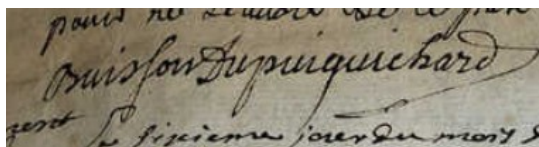 pour ne scavoir de ce
Buisson Dupuiguichard
sixieme jour du mois